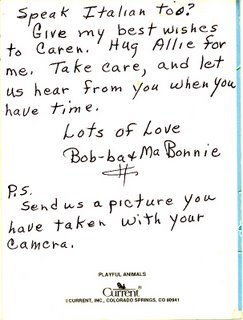 Speak Italian too?
Give my best wishes
to Caren. Hug Allie for
me. Take care, and let
us hear from you when you
have time.
Lots of Love
Bob-ba & Ma Bonnie
P.S.
Send us a picture you
have taken with your
camera.
PLAYFUL ANIMALS
Current
©CURRENT, INC., COLORADO SPRINGS, CO 80941